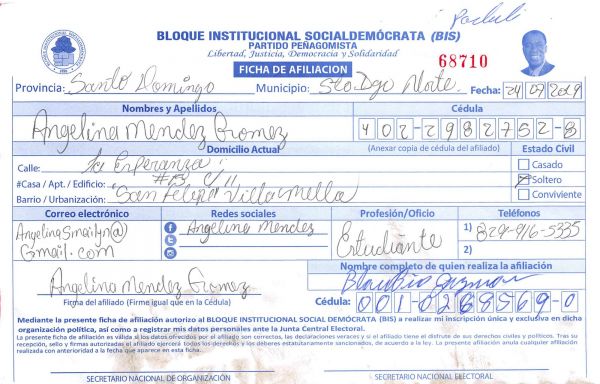 BLOQUE INSTITUCIONAL SOCIALDEMÓCRATA (BIS)
PARTIDO PEÑAGOMISTA
Libertad, Justicia, Democracia y Solidaridad
68710
FICHA DE AFILIACION
Provincia: Santo Domingo Municipio: Sto Dgo Norte. Fecha: 24 07 2019
Nombres y Apellidos Cédula
Angelina Mendez Gomez 402-2982752-8
Domicilio Actual (Anexar copia de cédula del afiliado) Estado Civil
Calle: La Esperanza Casado
#Casa / Apt. / Edificio: #13 C/11 Soltero
Barrio / Urbanización: San Felipe Villa Mella Conviviente
Correo electrónico Redes sociales Profesión/Oficio Teléfonos
AngelinaSmailyn@ Angelina Mendez Estudiante 1) 829-916-5335
Gmail.com 2)
Nombre completo de quien realiza la afiliación
Angelina Mendez Gomez Guzman
Firma del afiliado (Firme igual que en la Cédula) Cédula: 001-0288569-0
Mediante la presente ficha de afiliación autorizo al BLOQUE INSTITUCIONAL SOCIAL DEMÓCRATA (BIS) a realizar mi inscripción única y exclusiva en dicha
organización política, así como a registrar mis datos personales ante la Junta Central Electoral.
La presente ficha de afiliación es válida si los datos ofrecidos por el afiliado son correctos, las declaraciones veraces y si el afiliado tiene el disfrute de sus derechos civiles y políticos. Tras su
recepción, sello y firmas autorizadas el afiliado ejercerá todos los derechos y los deberes estatutarios sancionados, de acuerdo a la ley. La presente afiliación anula cualquier afiliación
realizada con anterioridad a la fecha que aparece en esta ficha.
SECRETARIO NACIONAL DE ORGANIZACIÓN SECRETARIO NACIONAL ELECTORAL